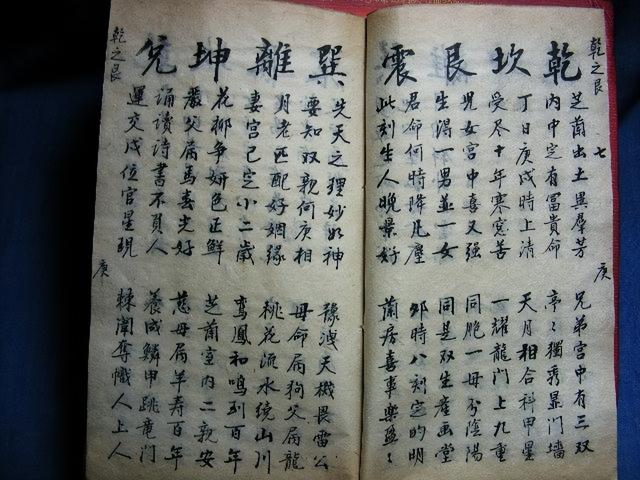 乾之艮 七 庚
乾 坎 艮 震
芝蘭出土異羣芳 兄弟宮中有三双
内中定有富貴命 亭々獨秀显门墻
丁日庚戌時上清 天月相合科甲星
受尽十年寒窓苦 一耀龍门上九重
児女宮中喜又强 同胞一母分陰陽
生渭一男並一女 同是双生産画堂
君命何時降凡塵 卯時八刻定的明
此刻生人晚景好 蘭房喜事樂盈々
巽 離 坤 兌
先天之理妙如神 豫洩天機畏雷公
要知双親何庚相 母命属狗父属龍
月老匹配好姻緣 桃花流水绕山川
妻宮已定小二歲 鸾鳳和鳴到百年
花柳争妍色正鮮 芝蘭室内二親安
嚴父属馬春光好 慈母属羊寿百年
誦讀詩書不負人 養成鱗甲跳竜门
運交戌位官星現 棘闈奪幟人上人
乾之艮 庚